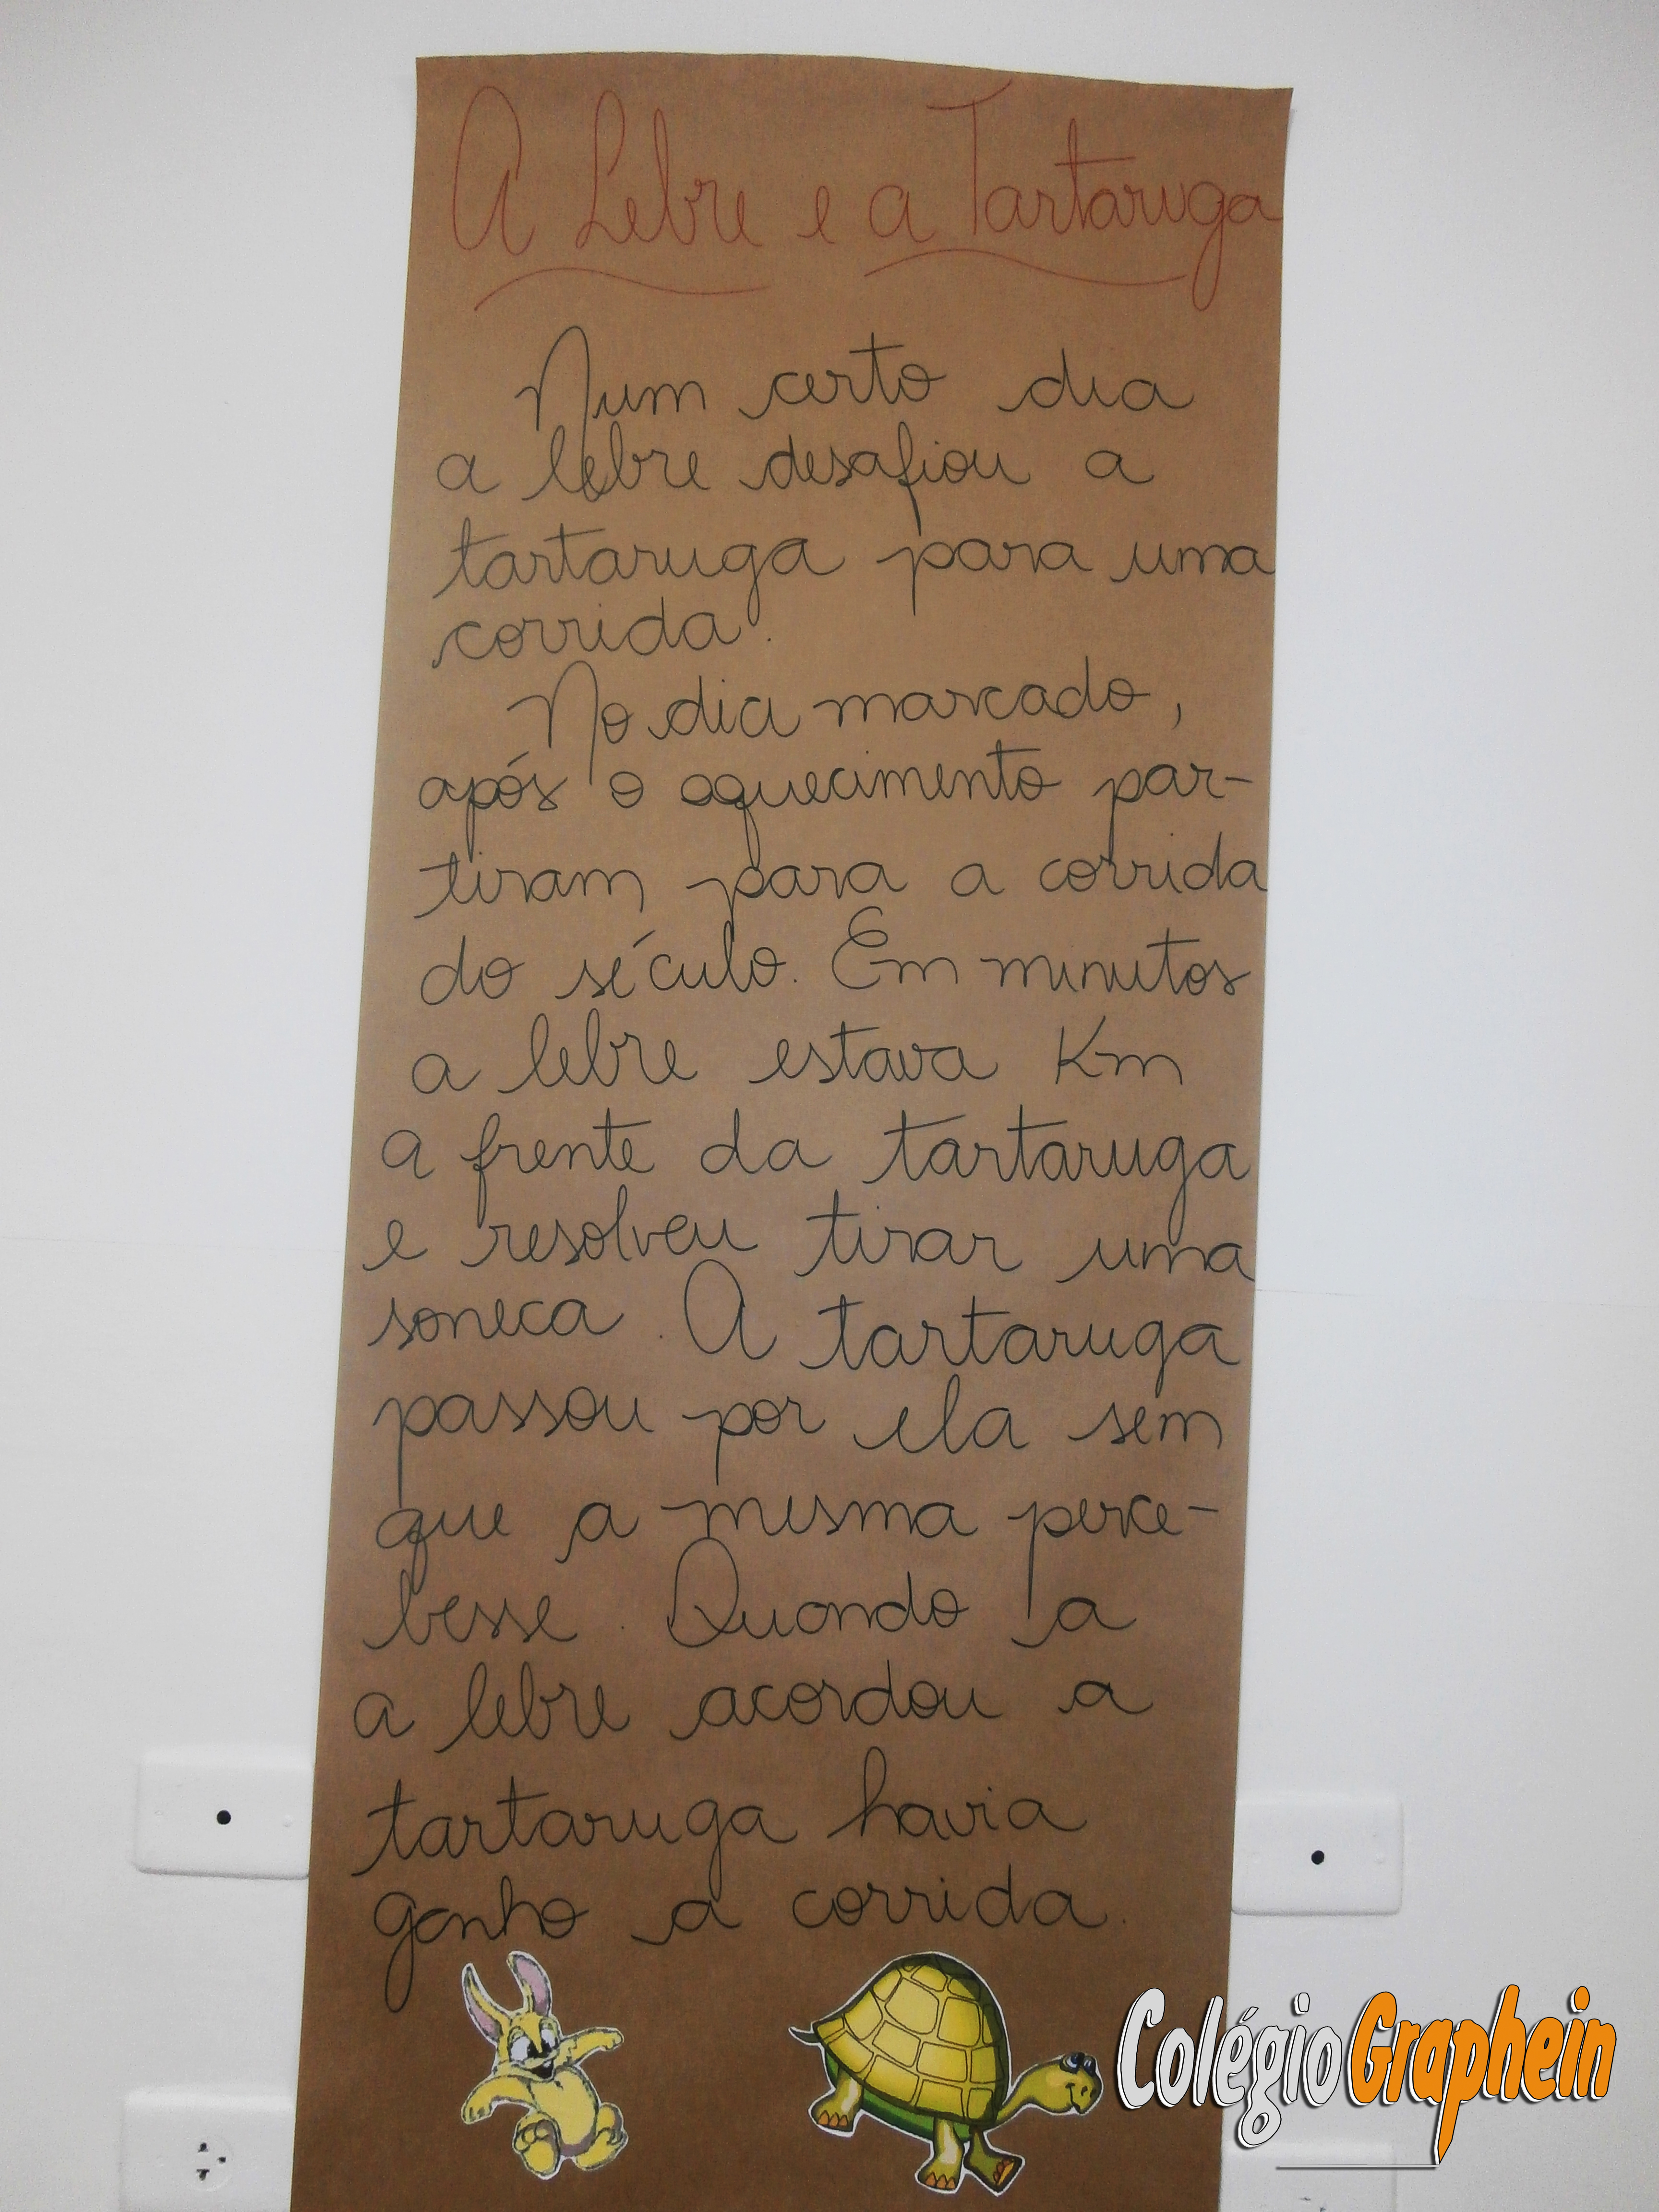 A Lebre e a Tartaruga
Num certo dia
a lebre desafiou a
tartaruga para uma
corrida.
No dia marcado,
após o aquecimento par-
tiram para a corrida
do século. Em minutos
a lebre estava Km
a frente da tartaruga
e resolveu tirar uma
soneca. A tartaruga
passou por ela sem
que a mesma perce-
besse. Quando a
a lebre acordou a
tartaruga havia
ganho a corrida.
Colégio Graphein